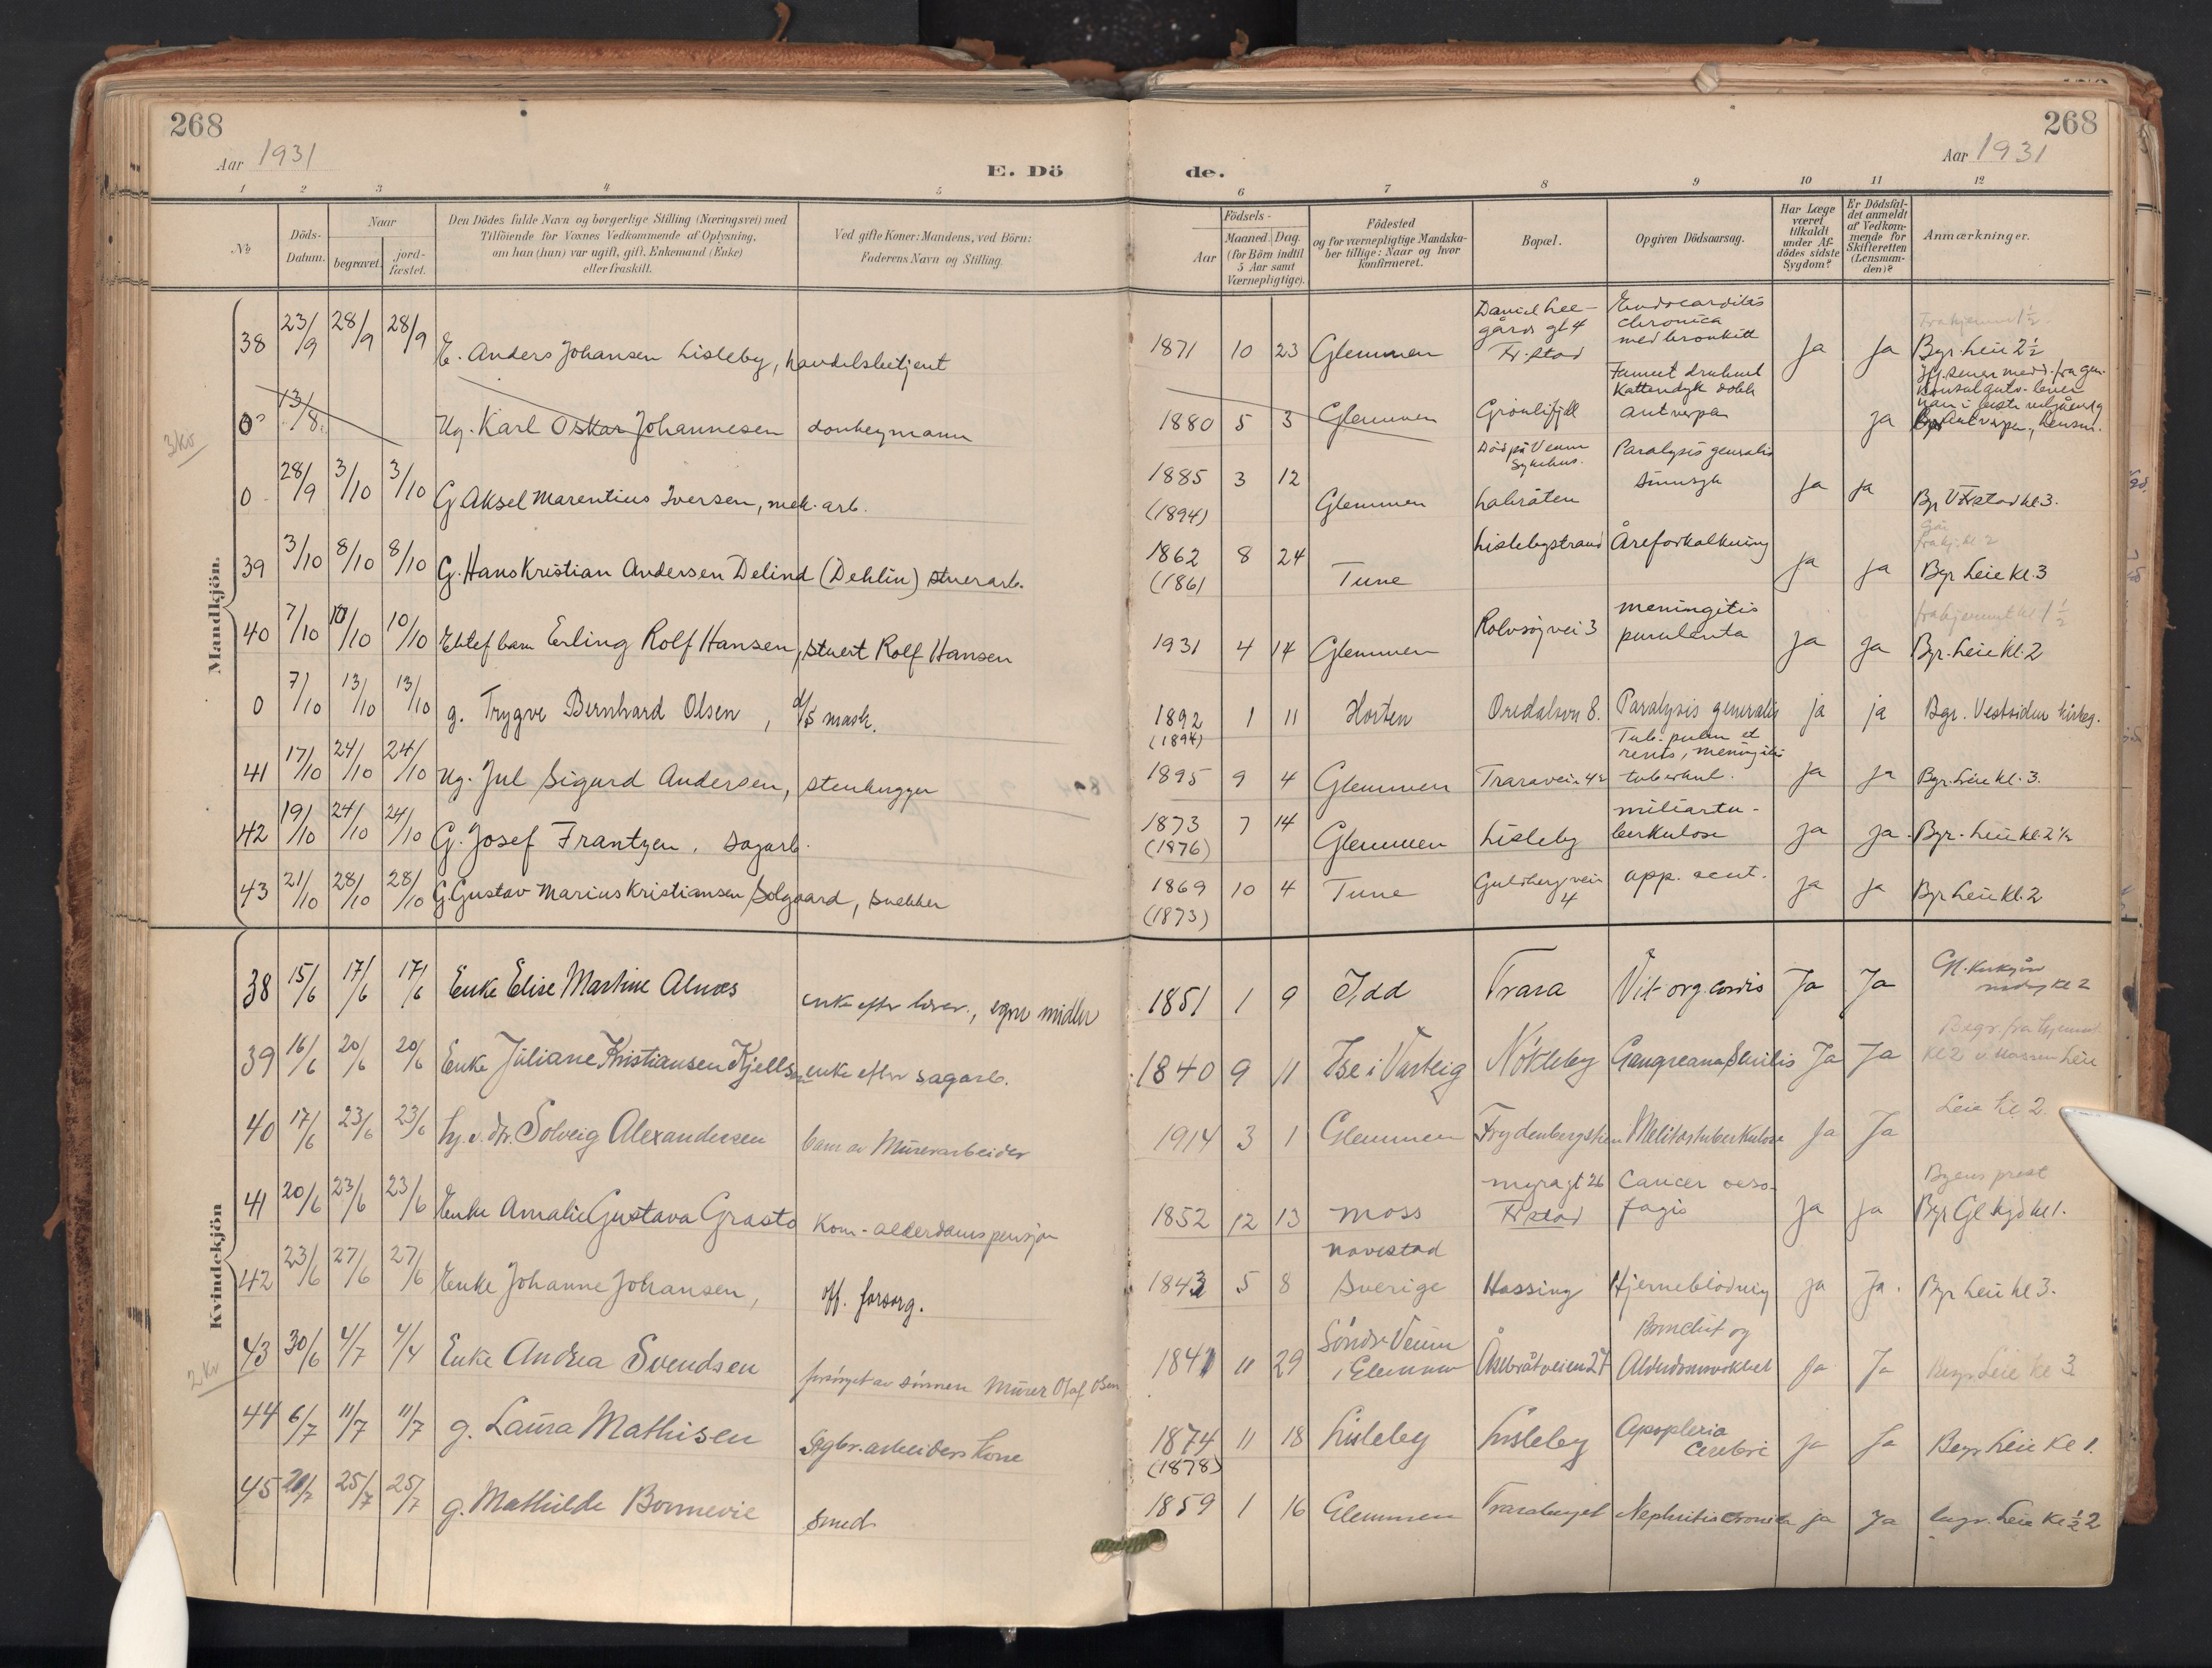 268
Aar 1931
E. Dö
de.
268
Aar 1931
1 2 3 4 5 6 7 8 9 10 11 12
No
Döds-Datum.
Naar
begravet.
jord-fæstet.
Den Dödes fulde Navn og borgerlige Stilling (Næringsvei) med
Tilföiende for Voxnes Vedkommende af Oplysning,
om han (hun) var ugift, gift, Enkemand (Enke)
eller fraskilt.
Ved gifte Koner: Mandens, ved Börn:
Faderens Navn og Stilling.
Födsels-
Aar
Maaned.
Dag.
(for Börn indtil
5 Aar samt
Værnepligtige).
Födested
og for værnepligtige Mandska-
ber tillige: Naar og hvor
konfirmeret.
Bopæl.
Opgiven Dödsaarsag.
Har Læge
været
tilkaldt
under Af-
dödes sidste
Sygdom?
Er Dödsfal-
det anmeldt
af Vedkom-
mende for
Skifteretten
(Lensman-
den)?
Anmærkninger.
Mandkjön.
38 23/9 28/9 28/9 E. Anders Johansen Lisleby, handelsbetjent 1871 10 23 Glemmen Fr.stad Endocarditis chronica med bronkitt Ja Ja Bgr. Leie 2½
3/kv
0 13/8 Ug. Karl Oskar Johannesen donkeymann 1880 5 3 Glemmen Antverpen Ja
0 28/9 3/10 3/10 G Aksel Marentius Iversen, mek. arb. 1885 (1894) 3 12 Glemmen Död på Veum Sykehus. Labråten Paralysis generalis Sinnsyk Ja Ja Bgr V Frstad kl 3.
39 3/10 8/10 8/10 G. Hans Kristian Andersen Delind (Dehlin) stuerarb. 1862 (1861 8 24 Tune Lislebystrand Åreforkalkning Ja Ja Bgr Leie Kl. 3
40 7/10 10/10 10/10 Ektef barn Erling Rolf Hansen, stuert Rolf Hansen 1931 4 14 Glemmen Rolvsøyvei 3 meningitis purulenta Ja Ja Bgr. Leie Kl. 2
0 7/10 13/10 13/10 g. Trygve Bernhard Olsen, d/s mask. 1892 (1894) 1 11 Horten Oredalsvn 8. Paralysis generalis ja ja Bgr. Vestsiden kirkeg.
41 17/10 24/10 24/10 Ug. Jul Sigurd Andersen, stenhugger 1895 9 4 Glemmen Traravein 42 Tub. pulm et renis, meningitis tuberkul. Ja Ja Bgr. Leie kl. 3.
42 19/10 24/10 24/10 G. Josef Frantzen, sagarb. 1873 (1876) 7 14 Glemmen Lisleby miliartuberkulose Ja Ja Bgr. Leie kl. 2½
43 21/10 28/10 28/10 G. Gustav Marius Kristiansen Solgaard, snekker 1869 (1873) 10 4 Tune Guldbergvein 4 app. acut. Ja Ja Bgr Leie Kl. 2
Kvindekjön
38 15/6 17/6 17/6 Enke Elise Martine Alnæs enke efter lærer., egne midler 1851 1 9 Idd Trara Vit. org. cordis Ja Ja
39 16/6 20/6 20/6 Enke Juliane Kristiansen Kjells enke efter sagarb. 1840 9 11 Ise i Varteig Nökleby Gangreana Senilis Ja Ja
40 17/6 23/6 23/6 hj.v. dtr. Solveig Alexandersen barn av Murerarbeider 1914 3 1 Glemmen Ja Ja Leie kl 2.
41 20/6 23/6 23/6 Enke Amalie Gustava Grasto kom-alderdomspensjon 1852 12 13 Moss myragt 26 Fr stad Cancer oesofagis Ja Ja Byens prest Bgr Gl kgd kl 1.
42 23/6 27/6 27/6 Enke Johanne Johansen, off. forsorg. 1843 5 8 Navestad Sverige Hassing Hjerneblödning Ja Ja. Bgr Leie kl 3.
2 kv
43 30/6 4/7 4/7 Enke Andrea Svendsen forsörget av sönnen Murer Olaf Olsen 1841 11 29 Söndre Veum i Glemmen Åsebråtveien 27 Bronchit og Ja Ja Begr Leie kl 3
44 6/7 11/7 11/7 g. Laura Mathisen Sagbr. arbeiders Kone 1874 (1878) 11 18 Lisleby Lisleby Apoplexia Cerebri Ja Ja Begr Leie Kl 1.
45 25/7 25/7 g. Mathilde Bonnevie Smed 1859 1 16 Glemmen Traraberget Nephritis cronica Ja Ja begr. Leie Kl ½2